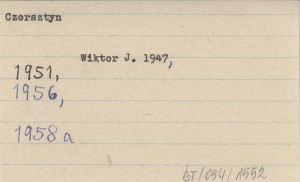 Czorsztyn
Wiktor J. 1947,
1951,
1956,
1958 a
bT/094/1552